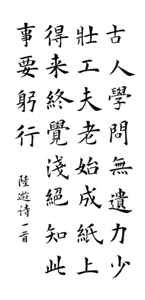 古人學問無遺力少
壯工夫老始成紙上
得来終覺淺絕知此
事要躬行
陸遊诗一首